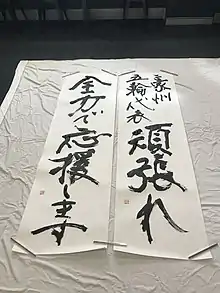 豪州
五輪代表
頑張れ
全力で応援します